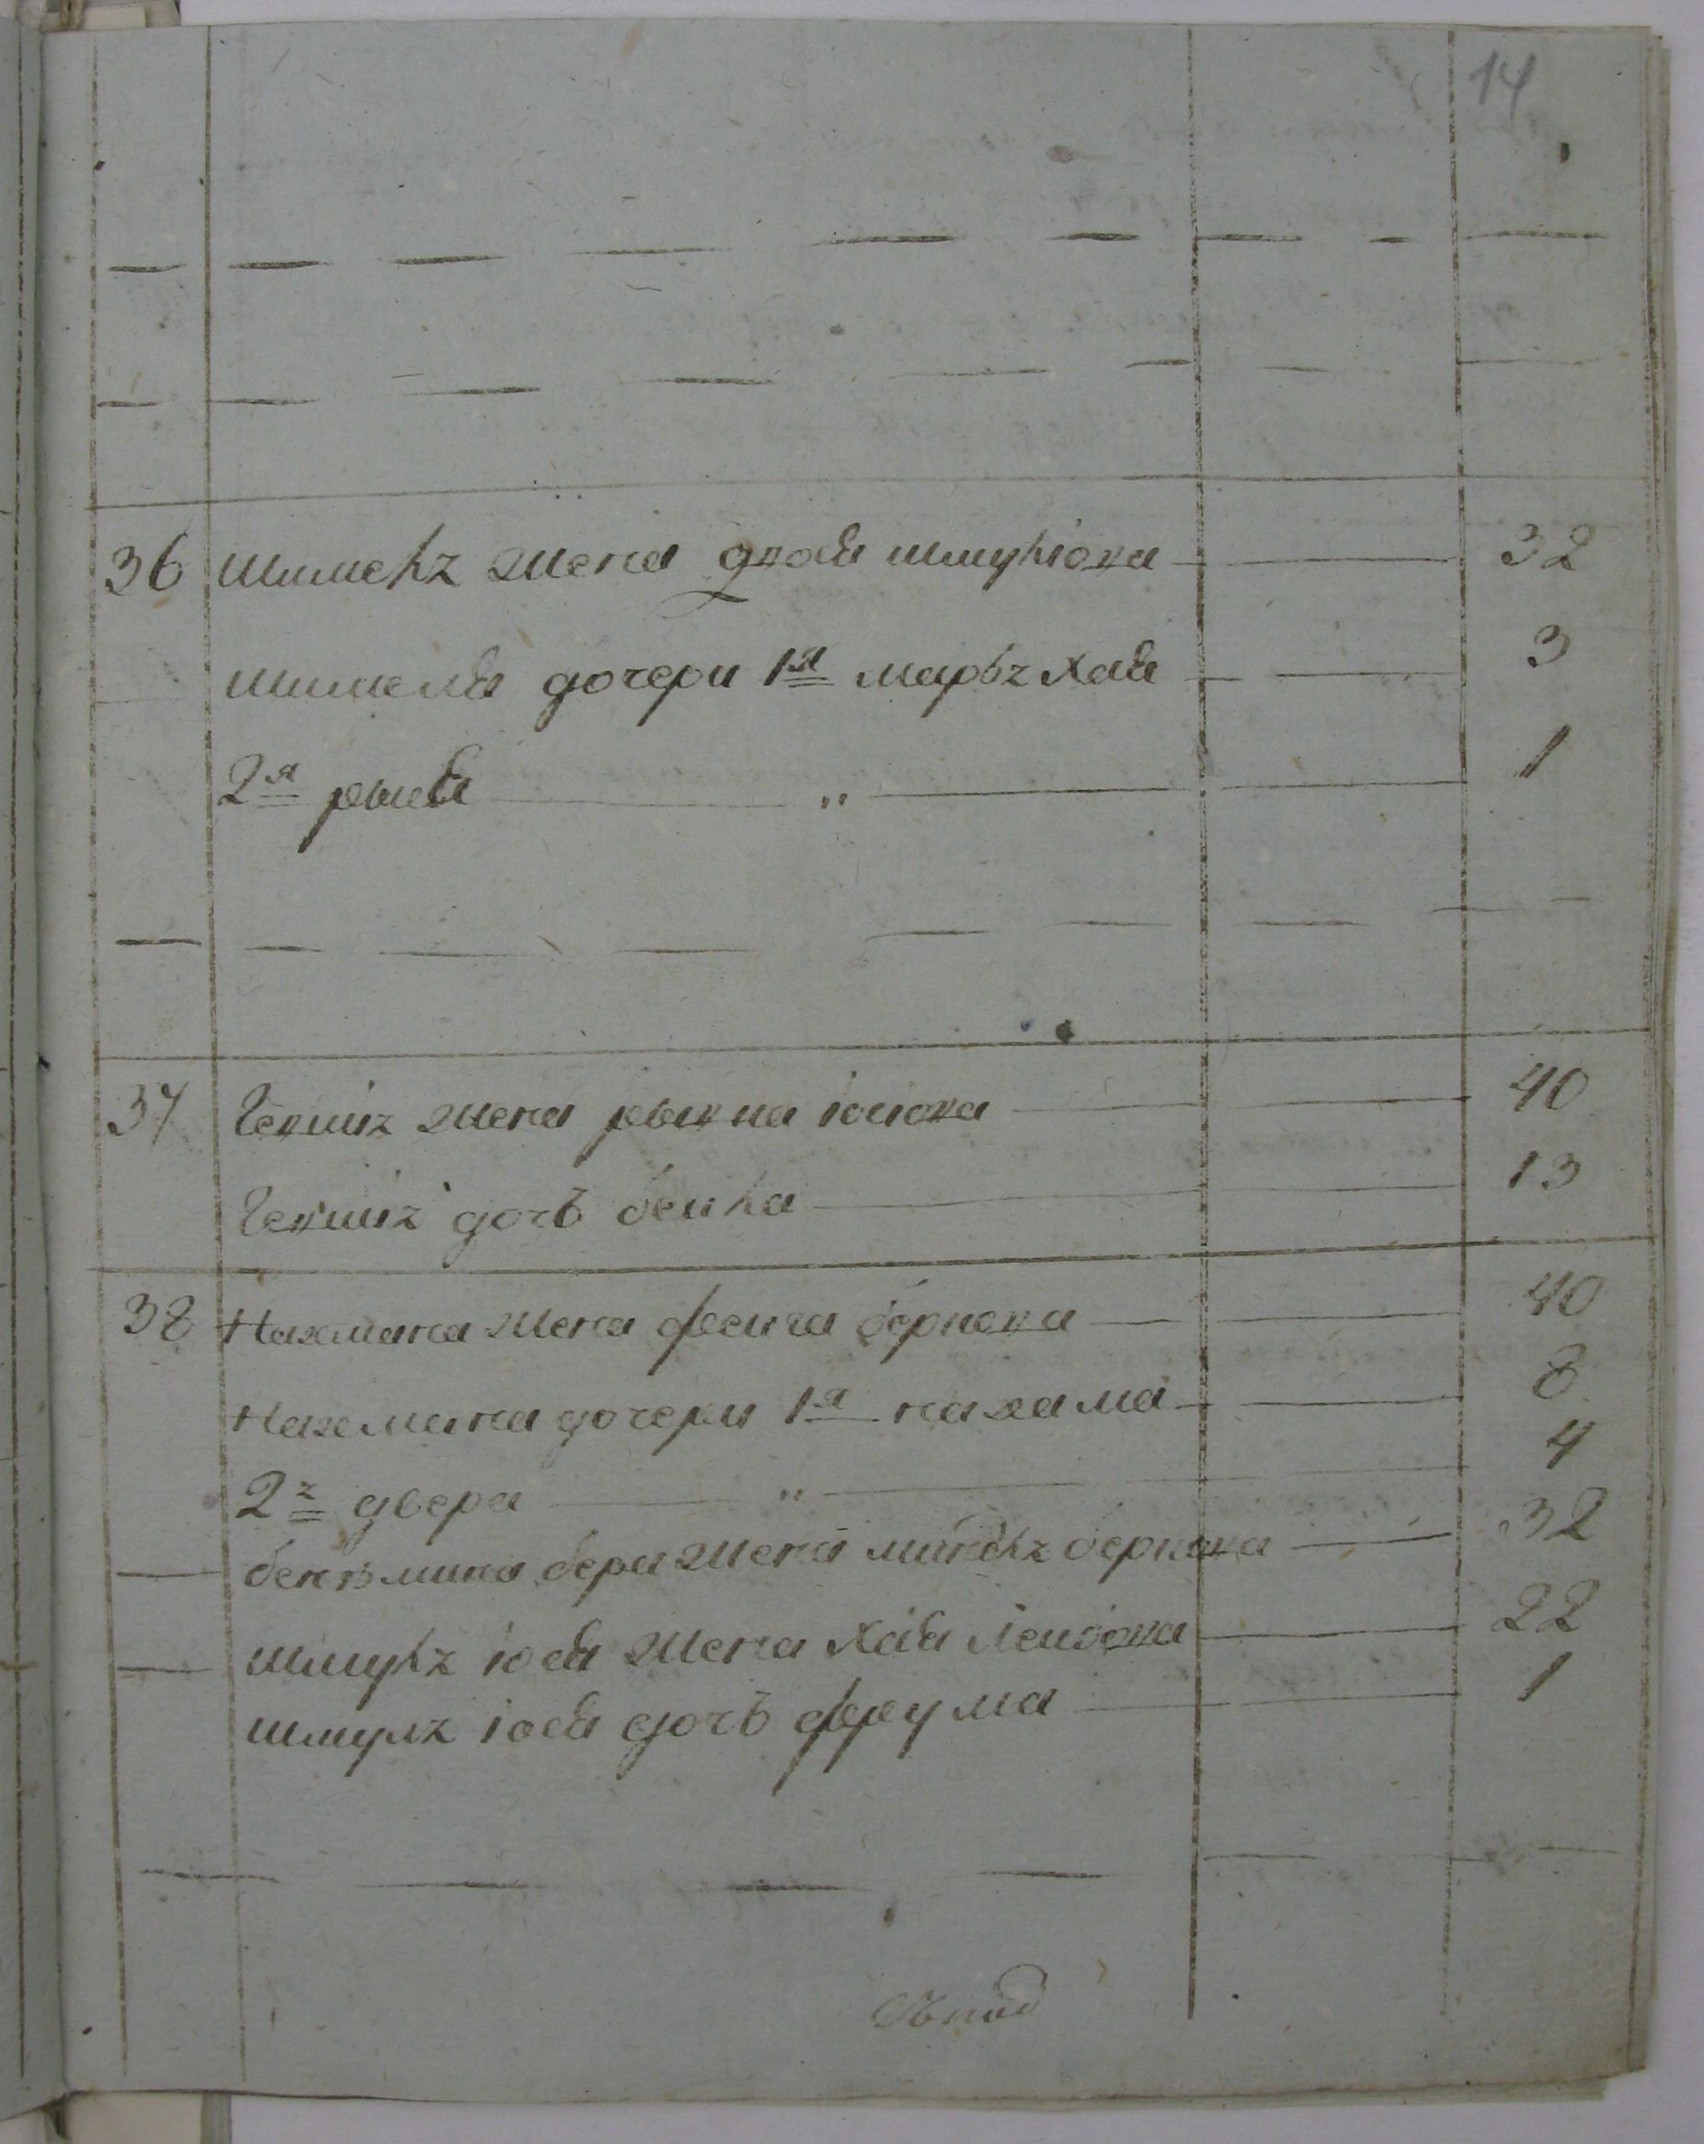 14
36 Шимелъ жена двося шмуліова 32
шимеля дочери 1я марьъ хася 3
2я рыся " 1
37 Гешиъ жена рывка іоиова 40
Гешиъ дочь бейла 13
38 Нахмана жена фейга беркова 40
Нахмана дочери 1я нахама 8
2ъ двера " 4
бенѣмина бера жена миндлъ беркова 32
шмулъ іося жена хася лейзова 22
шмулъ іося дочь фрума 1